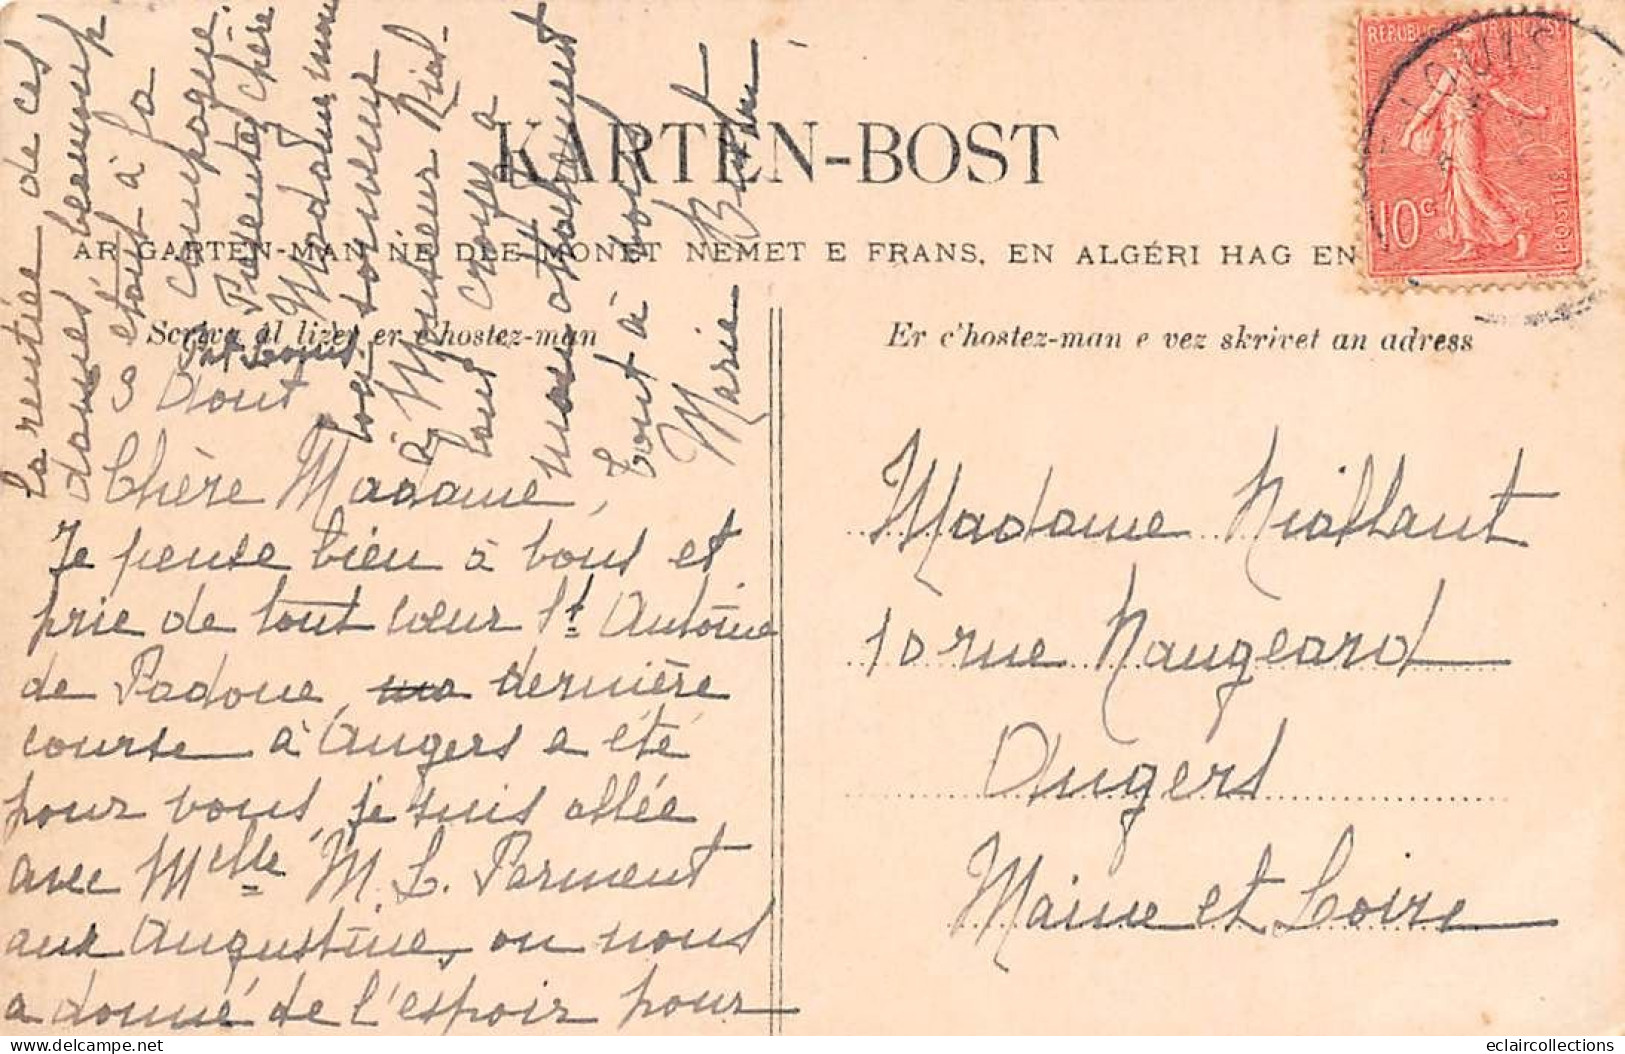 KARTEN-BOST
AR GARTEN-MAN NE DLE MONET NEMET E FRANS, EN ALGÉRI HAG EN
Scriva al lizer er c'hostez-man
Er c'hostez-man e vez skrivet an adress
REPUBLIQUE FRANÇAISE
10c
POSTES
LOUIS
Port Louis
8 Aout
Chère Madame,
Je pense bien à vous et
prie de tout cœur St Antoine
de Padoue, dernière
course à Angers a été
pour vous, je suis allée
avec Melle M. L. Parment
aux Augustine, on nous
a donné de l'espoir pour
la rentrée de ces
dames beaucoup
étant à la
campagne.
Présentez chère
Madame mon
bon souvenir
à Monsieur Nial-
lant croyez à
mon attachement
tout à vous
Marie
Madame Niallant
10 rue Naugeard
Angers
Maine et Loire
eclaircollections
delcampe.net